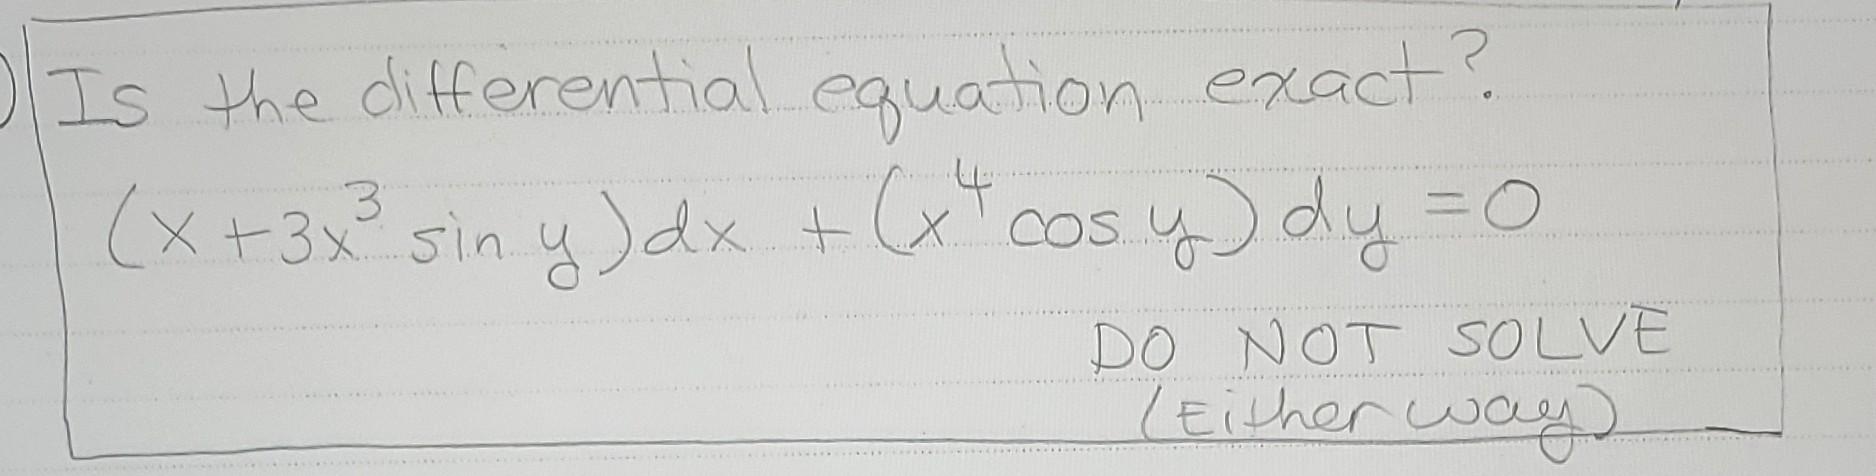 Is the differential equation exact?
(x+3x³ sin y)dx + (x⁴ cos y) dy = 0
DO NOT SOLVE
(Either way)